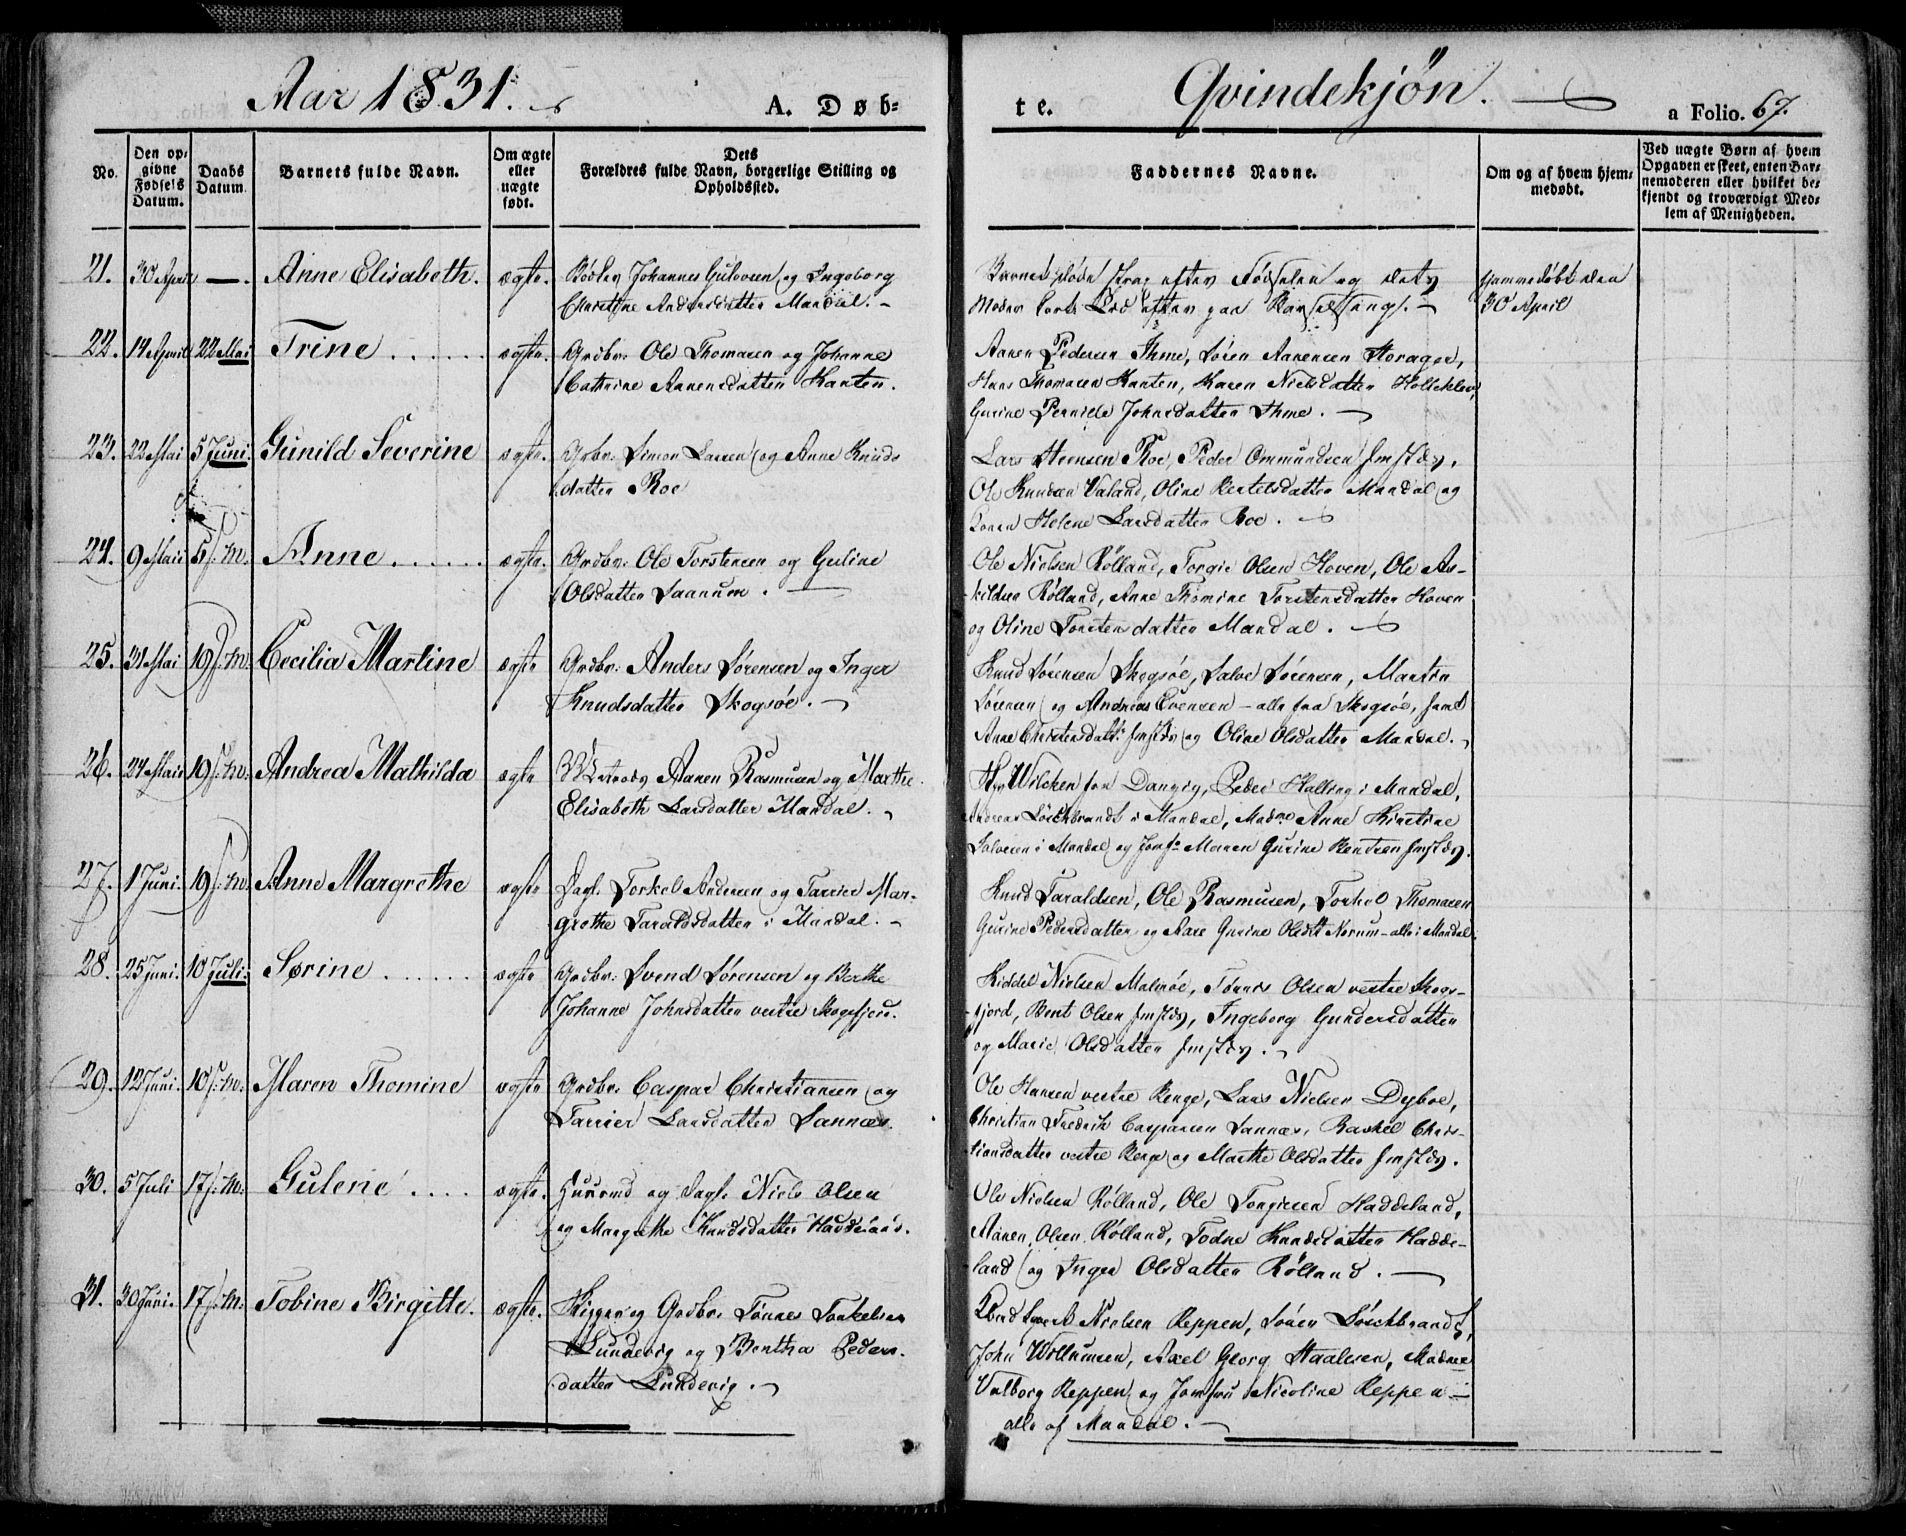 Aar 1831.
A. Døb-
te.
Qvindekjøn.
a Folio. 67.
No.
Den op-
givne
Fødsels
Datum.
Daabs
Datum.
Barnets fulde Navn.
Om ægte
eller
uægte
født.
Dets
Forældres fulde Navn, borgerlige Stilling og
Opholdssted.
Faddernes Navne.
Om og af hvem hjem-
medøbt.
Ved uægte Børn af hvem
Opgaven er skeet, enten Bar-
nemoderen eller hvilket be-
kjendt og troværdigt Med-
lem af Menigheden.
21. 30 April — . Anne Elisabeth. ægte. Bødker Johannes Gulovsen og Ingeborg
Christine Andersdatter Mandal. -
Barnet døde strax efter Fødselen og dets
Moder kort Tid efter paa Barselseng. -
hjemmedøbt den
30 April
22. 14 April 22 Mai Trine ...... ægte. Grdbr: Ole Thomasen og Johanne
Cathrine Aanensdatter Hanten.
Aanen Pedersen Ihme, Søren Aanensen Storager,
Hans Thomasen Hanten, Karen Nielsdatter Holleklev,
Gurine Pernille Johnsdatter Ihme. -
23. 22 Mai 5 Juni Gunild Severine ægte. Grbr: Simon Larsen og Anne Knuds
datter Roe
Lars Steensen Roe, Peder Ommundsen smstds,
Ole Knudsen Valand, Oline Bertelsdatter Mandal og
Konen Helene Larsdatter Roe. -
24. 9 Mai 5 s: M. Anne ...... ægte. Grdbr: Ole Torstensen og Guline
Olsdatter Saanum. -
Ole Nielsen Rølland, Torgie Olsen Hoven, Ole As-
kildsen Rølland, Anne Thomine Torstensdatter Hoven
og Oline Torstensdatter Mandal. -
25. 31 Mai 19 s: M. Cecilia Martine ægte Grdbr: Anders Sørensen og Inger
Knudsdatter Skogsøe. -
Knud Sørensen Skogsøe, Salve Sørensen, Martin
Sørensen og Andreas Evensen - alle fra Skogsøe, samt
Anne Christensdatt: smstds og Oline Olsdatter Mandal.
26. 24 Mai 19 s: M. Andrea Mathilda ægte Aanen Rasmusen og Marthe
Elisabeth Larsdatter Mandal. -
Hr Wilcken fra Danzig, Peder Halling i Mandal,
Andreas Løschbrandt i Mandal, Madme Anne Kirstine
Salvesen i Mandal og Jomf: Maren Gurine Bentsen smstds.
27. 1 Juni. 19 s: M. Anne Margrethe ægte Dagl. Torkel Andersen og Tarrier Mar-
grethe Taraldsdatter i Mandal. -
Knud Taraldsen, Ole Rasmusen, Torkel Thomasen
Gurine Pedersdatter og Aase Gurine Olsdt Norum - alle i Mandal.
28. 25 Juni. 10 Juli: Sørine ...... ægte Grdbr: Svend Sørensen og Berthe
Johanne Johnsdatter vestre Skogsfjord.
Kiddel Nielsen Malmøe, Tønnes Olsen vestre Skogs-
fjord, Bent Olsen smstds, Ingeborg Gundersdatter
og Marie Olsdatter smstds. -
29. 12 Juni. 10 s: M. Maren Thomine ægte Grdbr: Caspar Christiansen og
Tarrier Larsdatter Sannæs.
Ole Hansen vestre Berge, Lars Nielsen Dyboe,
Christian Fredrik Caspersen Sannæs, Raskel Chris-
tiansdatter vestre Berge og Marthe Olsdatter smstds.
30. 5 Juli 17 s: M: Gulene .... ægte. Huusmd og Dagl. Niels Olsen
og Margrethe Knudsdatter Haddeland.
Ole Nielsen Rølland, Ole Torgiesen Haddeland,
Aanen Olsen Rølland, Todne Knudsdatter Hadde-
land og Inger Olsdatter Rølland. -
31. 30 Juni. 17 s: M: Tobine Birgitte. ægte. Skipper og Grdbr: Tønnes Torkelsen
Lundevig og Bentha Peders-
datter Lundevig. -
Nielsen Reppen, Søren Løschbrandt,
John Willumsen, Axel Georg Staalesen, Madme
Valborg Reppen og Jomfru Nicoline Reppen -
alle af Mandal. -